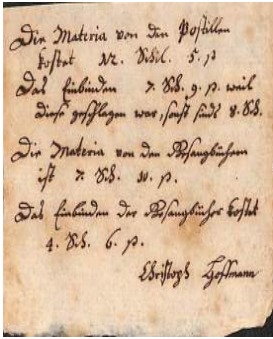 Die Materia von den Postillen
kostet 12. Schil. 5. p
Das Einbinden 7. Sch. 9. p. weil
diese geschlagen war, sonst sinds 8. Sch.
Die Materia von den Gesangbüchern
ist 7. Sch. 10. p.
Das Einbinden der Gesangbücher kostet
4. Sch. 6. p.
Christoph Hoffmann